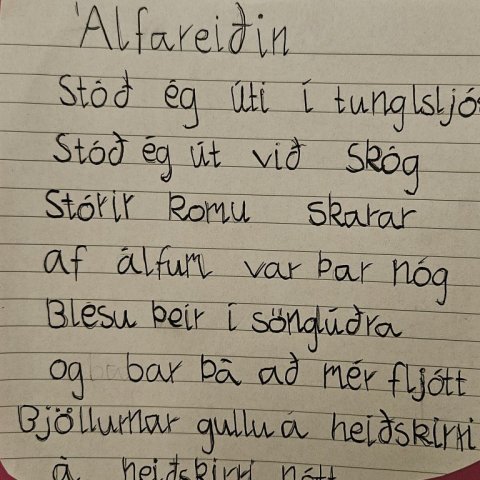 Álfareiðin
Stóð ég úti í tunglsljós
Stóð ég út við skóg
Stórir komu skarar
af álfum var þar nóg
Blésu þeir í sönglúðra
og bar þá að mér fljótt
Bjöllurnar gullu á heiðskírri
á heiðskírri nótt